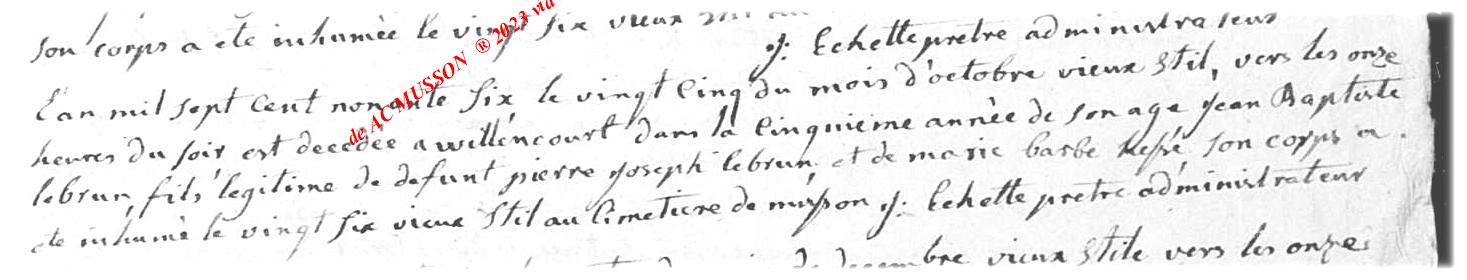 son corps a ete inhumèe le vingt six vieux
j: Echette pretre administrateur
L'an mil sept cent nonante six le vingt cinq du mois d'octobre vieux stil, vers les onze
heures du soir est decedèe a willencourt dans la cinquieme annèe de son age jean Baptiste
lebrun, fils legitime de defunt pierre joseph lebrun et de marie barbe son corps a
ete inhumè le vingt six vieux stil au cimetiere de musson j: Echette pretre administrateur
de decembre vieux stile vers les onze
de ACMUSSON ® 2023 via